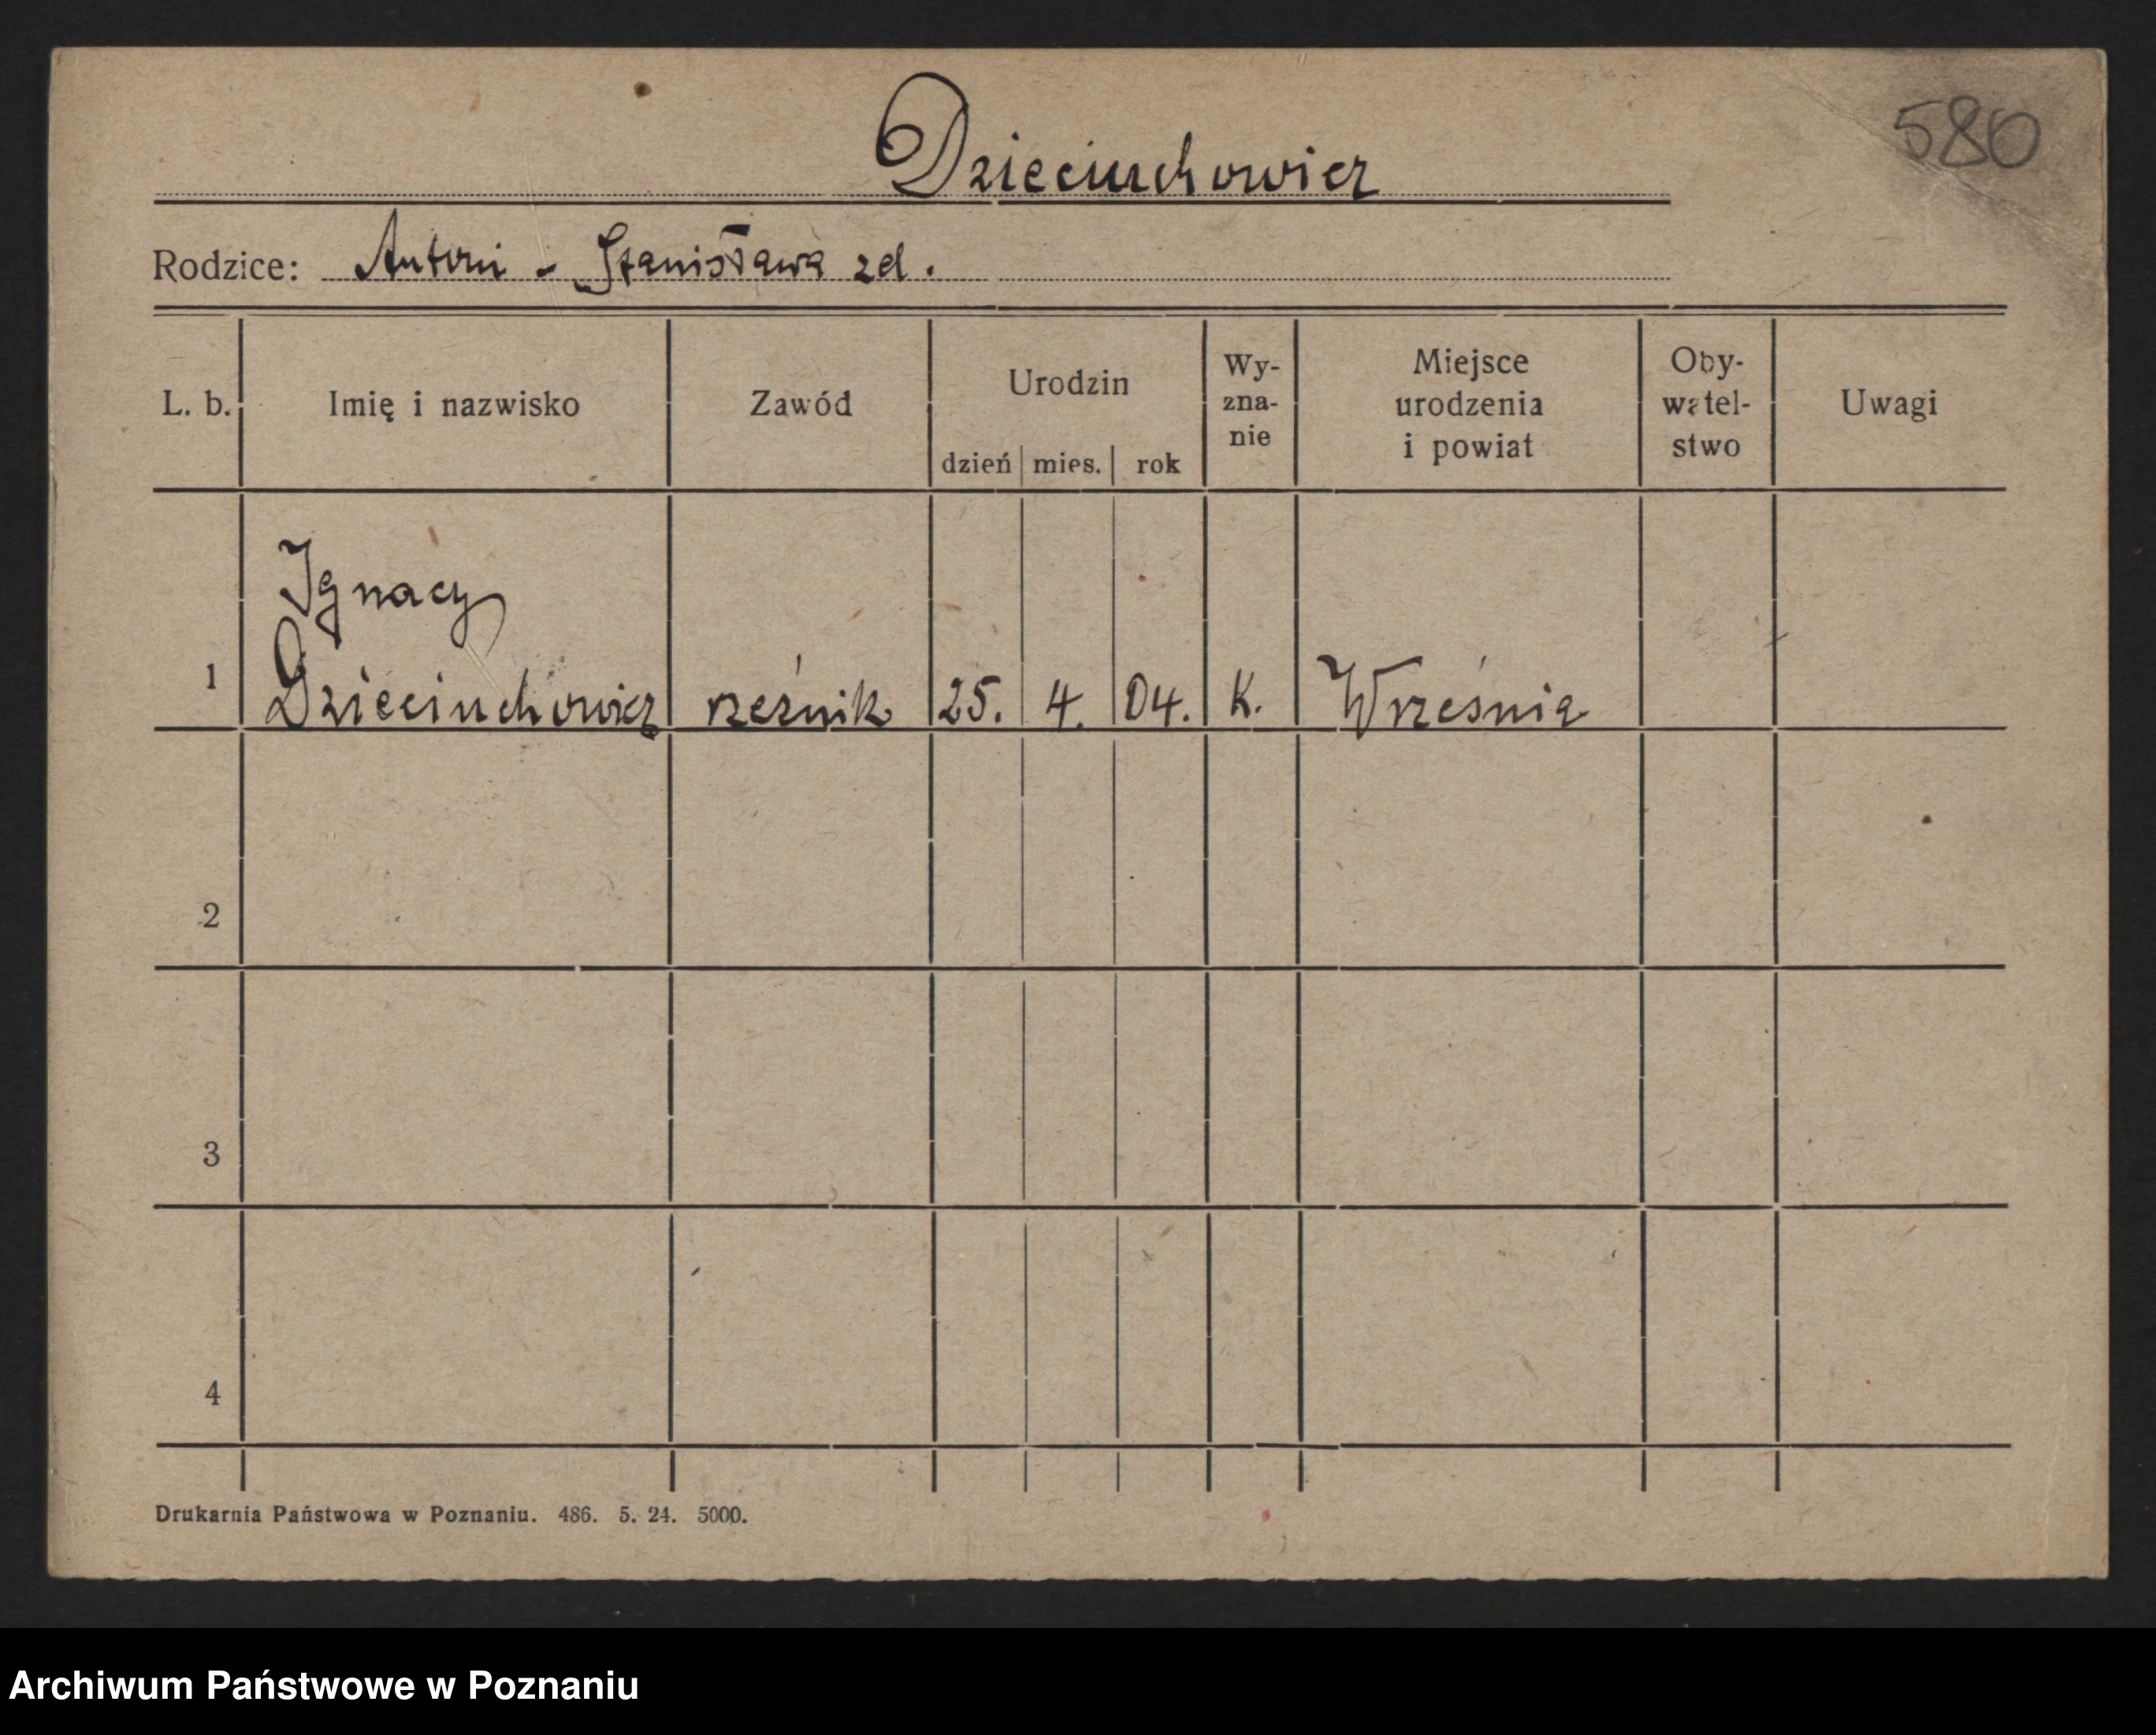 580
Dzieciuchowicz
Rodzice: Antoni - Stanisława zd.
L. b. Imię i nazwisko Zawód Urodzin dzień mies. rok Wy-zna-nie Miejsce urodzenia i powiat Oby-watel-stwo Uwagi
Ignacy
1 Dzieciuchowicz rzeźnik 25. 4. 04. K. Września
2
3
4
Drukarnia Państwowa w Poznaniu. 486. 5. 24. 5000.
Archiwum Państwowe w Poznaniu